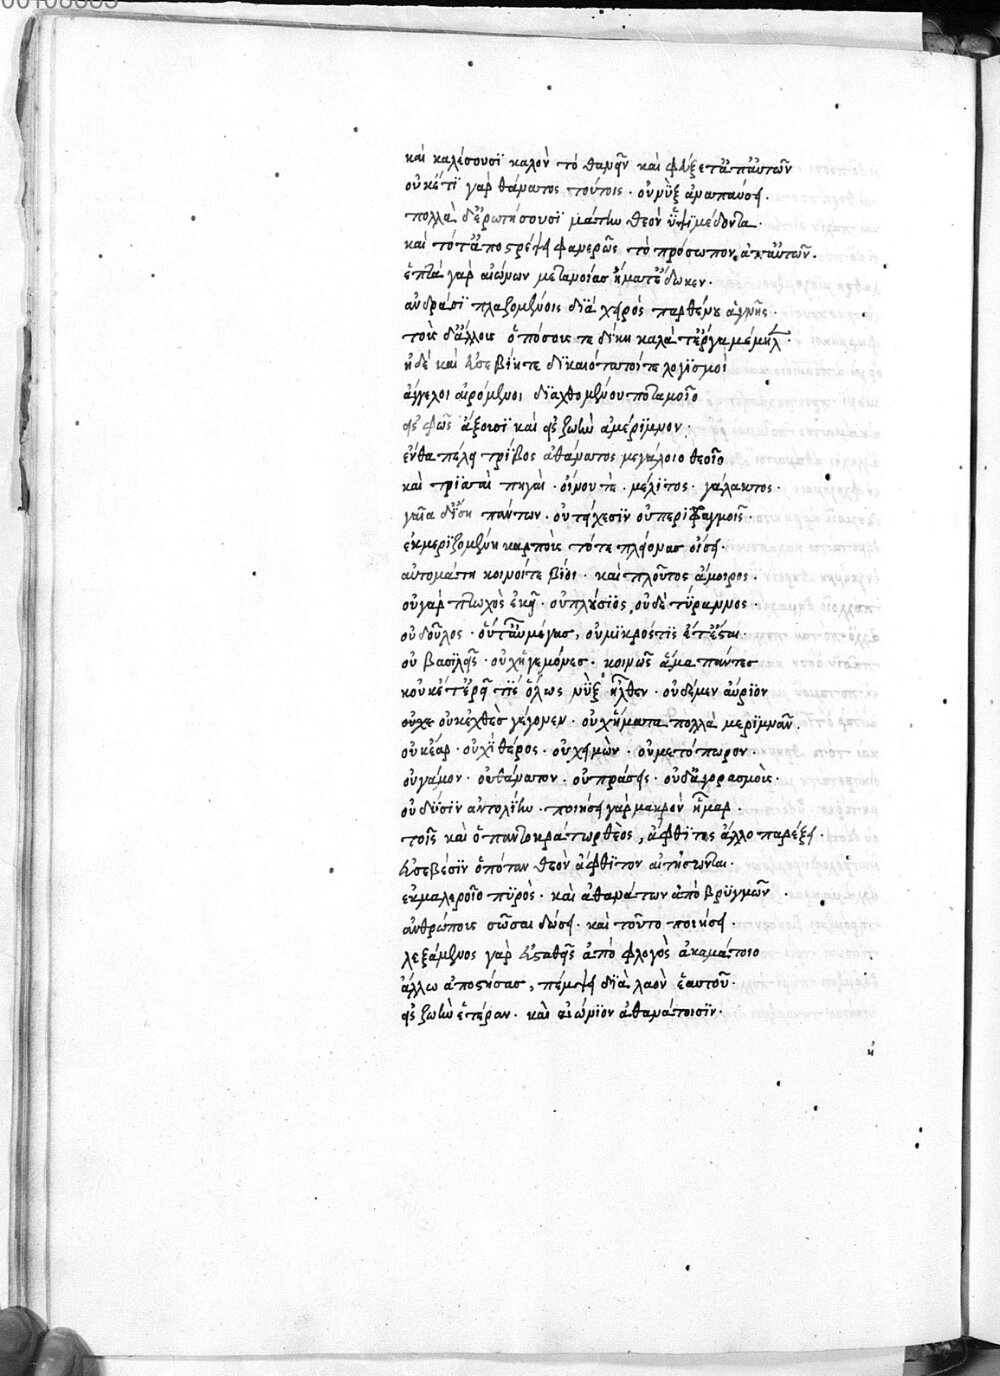 καὶ καλέσουσι καλὸν τὸ θανεῖν καὶ φεύξετ' ἀπ' αὐτῶν
οὐκέτι γὰρ θάνατος τούτοις · οὐ νὺξ ἀναπαύσει ·
πολλὰ δ' ἐρωτήσουσι μάτην θεὸν ὑψιμέδοντα ·
καὶ τότ' ἀποστρέψει φανερῶς τὸ πρόσωπον ἀπ' αὐτῶν ·
ἑπτὰ γὰρ αἰώνων μετανοίας ἤματ' ἔδωκεν ·
ἀνδράσι πλαζομένοις διὰ χειρὸς παρθένου ἁγνῆς ·
τοὺς δ' ἄλλους ὁπόσοις τε δίκη καλά τ' ἔργα μέμηλ ·
ἠδὲ καὶ εὐσεβίη τε δικαιότατοί τε λογισμοί
ἄγγελοι αἰρόμενοι δι' αἰθομένου ποταμοῖο
εἰς φῶς ἄξουσι καὶ εἰς ζωὴν ἀμέριμνον ·
ἔνθα πέλει τρίβος ἀθάνατος μεγάλοιο θεοῖο
καὶ τρισσαὶ πηγαὶ · οἴνου τε · μέλιτος · γάλακτος ·
γαῖα δ' ἴση πάντων · οὐ τείχεσιν οὐ περιφραγμοῖς ·
ἐκμεριζομένη καρποὺς τότε πλείονας οἴσει ·
αὐτομάτη κοινοί τε βίοι · καὶ πλοῦτος ἄμοιρος ·
οὐ γὰρ πτωχὸς ἐκεῖ · οὐ πλούσιος, οὐδὲ τύραννος ·
οὐ δοῦλος · οὔτ' αὖ μέγας, οὐ μικρός τις ἔτ' ἔσται ·
οὐ βασιλεῖς · οὐχ ἡγεμόνες · κοινῶς ἅμα πάντες
κοὐκέτ' ἐρεῖ τις ὅλως νὺξ ἦλθεν · οὐδὲ μὲν αὔριον
οὐχε οὐκ ἐχθὲς γέγονεν · οὐχ ἤματα πολλὰ μεριμνᾶν ·
οὐκ ἔαρ · οὐχὶ θέρος · οὐ χειμὼν · οὐ μετόπωρον ·
οὐ γάμον · οὐ θάνατον · οὐ πράσεις · οὐδ' ἀγορασμοὺς ·
οὐ δύσιν ἀντολίην · ποιήσει γὰρ μακρὸν ἦμαρ ·
τοῖς καὶ ὁ παντοκράτωρ θεὸς, ἄφθιτος ἄλλο παρέξει ·
εὐσεβέσιν ὁπόταν θεὸν ἄφθιτον αἰτήσωνται ·
ἐκ μαλεροῖο πυρὸς · καὶ ἀθανάτων ἀπὸ βρυγμῶν ·
ἀνθρώποις σῶσαι δώσει · καὶ τοῦτο ποιήσει ·
λεξάμενος γὰρ εὐσταθεῖς ἀπὸ φλογὸς ἀκαμάτοιο
ἄλλω ἀποστήσας, πέμψει διὰ λαὸν ἑαυτοῦ ·
εἰς ζωὴν ἑτέραν · καὶ αἰώνιον ἀθανάτοισιν ·